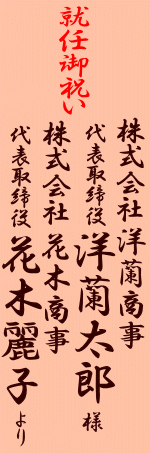 就任御祝い
株式会社 洋蘭商事
代表取締役 洋蘭太郎 様
株式会社 花木商事
代表取締役 花木麗子 より